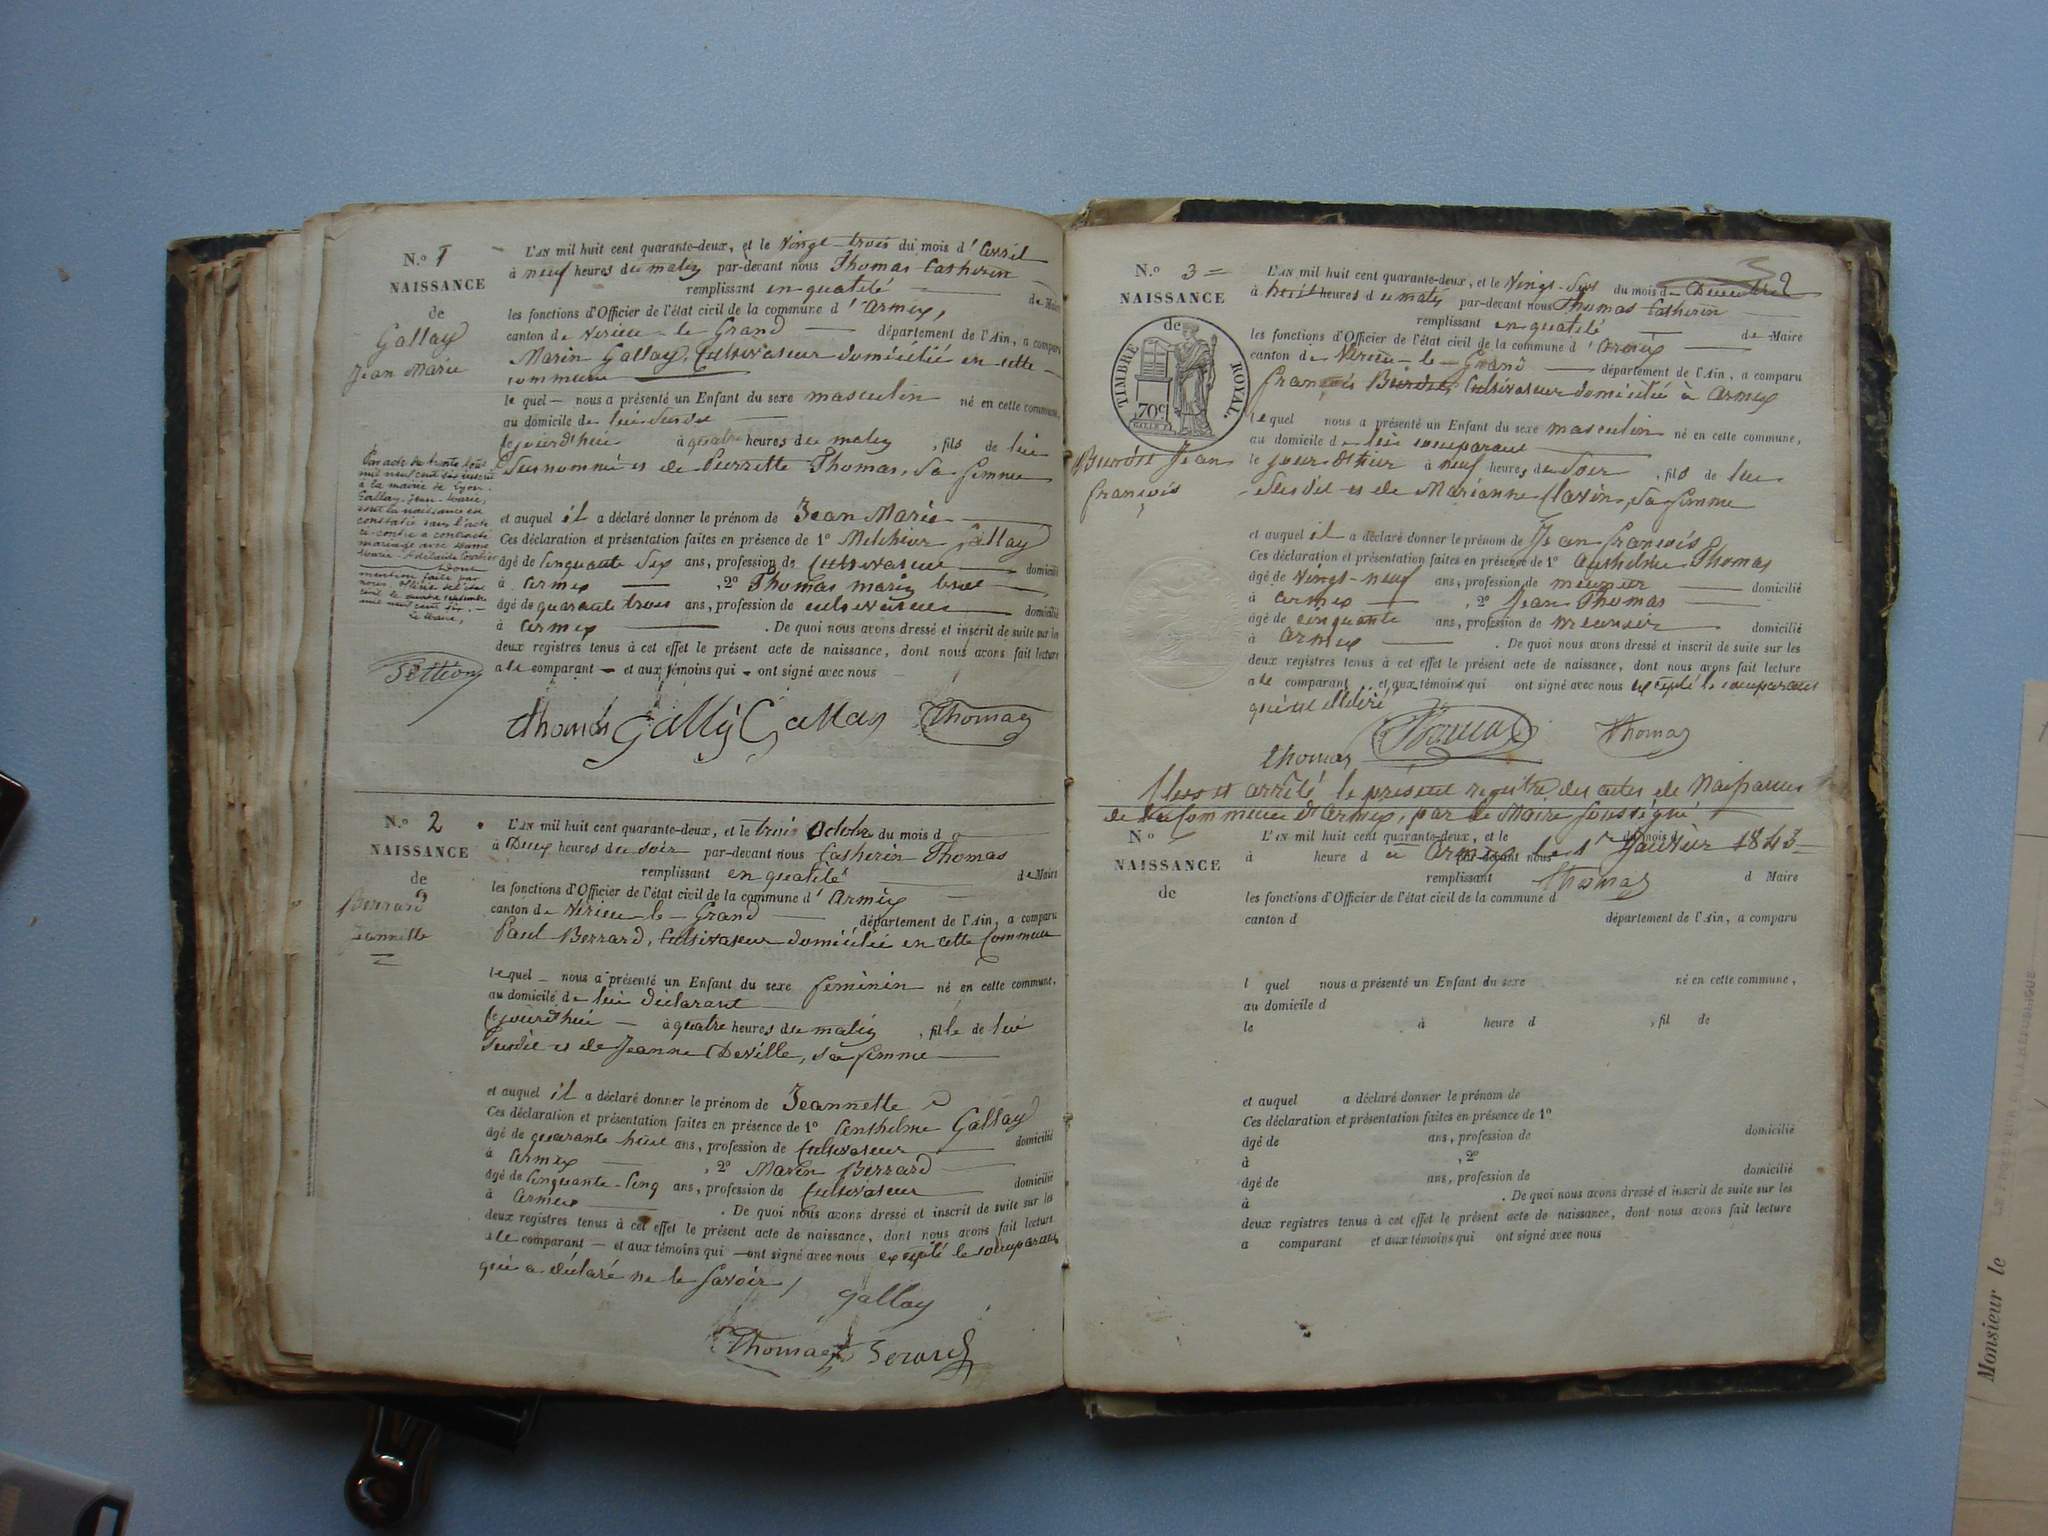 N.° 1
NAISSANCE
de
Gallay
Jean Marie
L'AN mil huit cent quarante-deux, et le vingt-trois du mois d'Avril
à neuf heures du matin par-devant nous Thomas Catherin
remplissant en qualité de Maire
les fonctions d'Officier de l'état civil de la commune d'armix,
canton de Virieu-le-Grand département de l'Ain, a comparu
Marin Gallay, Cultivateur domicilié en cette
commune
le quel nous a présenté un Enfant du sexe masculin né en cette commune,
au domicile de lui susdit
le jourd'hui à quatre heures du matin, fils de lui
susnommé et de Pierrette Thomas, sa femme
et auquel il a déclaré donner le prénom de Jean Marie
Ces déclaration et présentation faites en présence de 1° Melchior Gallay
âgé de Cinquante Six ans, profession de Cultivateur domicilié
à armix, 2° Thomas marin
âgé de quarante trois ans, profession de cultivateur domicilié
à armix. De quoi nous avons dressé et inscrit de suite sur les
deux registres tenus à cet effet le présent acte de naissance, dont nous avons fait lecture
a le comparant et aux témoins qui ont signé avec nous
Par acte du trente
mil neuf cent six inscrit
à la mairie de Lyon.
Gallay, Jean-Marie,
dont la naissance est
constatée dans l'acte
ci-contre a contracté
mariage avec
Marie-Adélaïde
Dont
mention faite par
nous, Officier de l'état
civil le quatre septembre
mil neuf cent six.
Le Maire,
Thomas Gallay Gallay Thomas
N.° 2
NAISSANCE
de
Berrard
Jeannette
L'AN mil huit cent quarante-deux, et le trois Octobre du mois d
à Deux heures du soir par-devant nous Catherin Thomas
remplissant en qualité de Maire
les fonctions d'Officier de l'état civil de la commune d'Armix
canton de Virieu-le-Grand département de l'Ain, a comparu
Paul Berrard, Cultivateur domicilié en cette Commune
lequel nous a présenté un Enfant du sexe féminin né en cette commune,
au domicile de lui déclarant
le jourd'hui à quatre heures du matin, fille de lui
susdit et de Jeanne Deville, sa femme
et auquel il a déclaré donner le prénom de Jeannette
Ces déclaration et présentation faites en présence de 1° Anthelme Gallay
âgé de quarante huit ans, profession de Cultivateur domicilié
à armix, 2° Marin Berrard
âgé de Cinquante-Cinq ans, profession de Cultivateur domicilié
à armix. De quoi nous avons dressé et inscrit de suite sur les
deux registres tenus à cet effet le présent acte de naissance, dont nous avons fait lecture
a le comparant et aux témoins qui ont signé avec nous excepté le comparant
qui a déclaré ne le savoir
Gallay
Thomas Berard
N.° 3
NAISSANCE
de
TIMBRE ROYAL.
70c
Burdit Jean
françois
L'AN mil huit cent quarante-deux, et le vingt-six du mois de Décembre
à huit heures du matin par-devant nous Thomas Catherin
remplissant en qualité de Maire
les fonctions d'Officier de l'état civil de la commune d'Armix
canton de Virieu-le-Grand département de l'Ain, a comparu
françois Burdit, Cultivateur domicilié à Armix
le quel nous a présenté un Enfant du sexe masculin né en cette commune,
au domicile de lui comparant
le jour d'hier à neuf heures du soir, fils de lui
susdit et de Marianne Clavin, sa femme
et auquel il a déclaré donner le prénom de Jean françois
Ces déclaration et présentation faites en présence de 1° Anthelme Thomas
âgé de vingt-neuf ans, profession de meunier domicilié
à armix, 2° Jean Thomas
âgé de cinquante ans, profession de meunier domicilié
à armix. De quoi nous avons dressé et inscrit de suite sur les
deux registres tenus à cet effet le présent acte de naissance, dont nous avons fait lecture
a le comparant et aux témoins qui ont signé avec nous excepté le comparant
qui est illitéré
Thomas Thomas Thomas
Clos et arrêté le présent registre des actes de Naissances
de la Commune d'armix, par le Maire soussigné
N.°
NAISSANCE
de
L'AN mil huit cent quarante-deux, et le du mois d
à armix le 1er Janvier 1843
à heure d par-devant nous
remplissant Thomas d Maire
les fonctions d'Officier de l'état civil de la commune d
canton d département de l'Ain, a comparu
l quel nous a présenté un Enfant du sexe né en cette commune,
au domicile d
le à heure d, fil de
et auquel a déclaré donner le prénom de
Ces déclaration et présentation faites en présence de 1°
âgé de ans, profession de domicilié
à, 2°
âgé de ans, profession de domicilié
à. De quoi nous avons dressé et inscrit de suite sur les
deux registres tenus à cet effet le présent acte de naissance, dont nous avons fait lecture
a comparant et aux témoins qui ont signé avec nous
Monsieur le